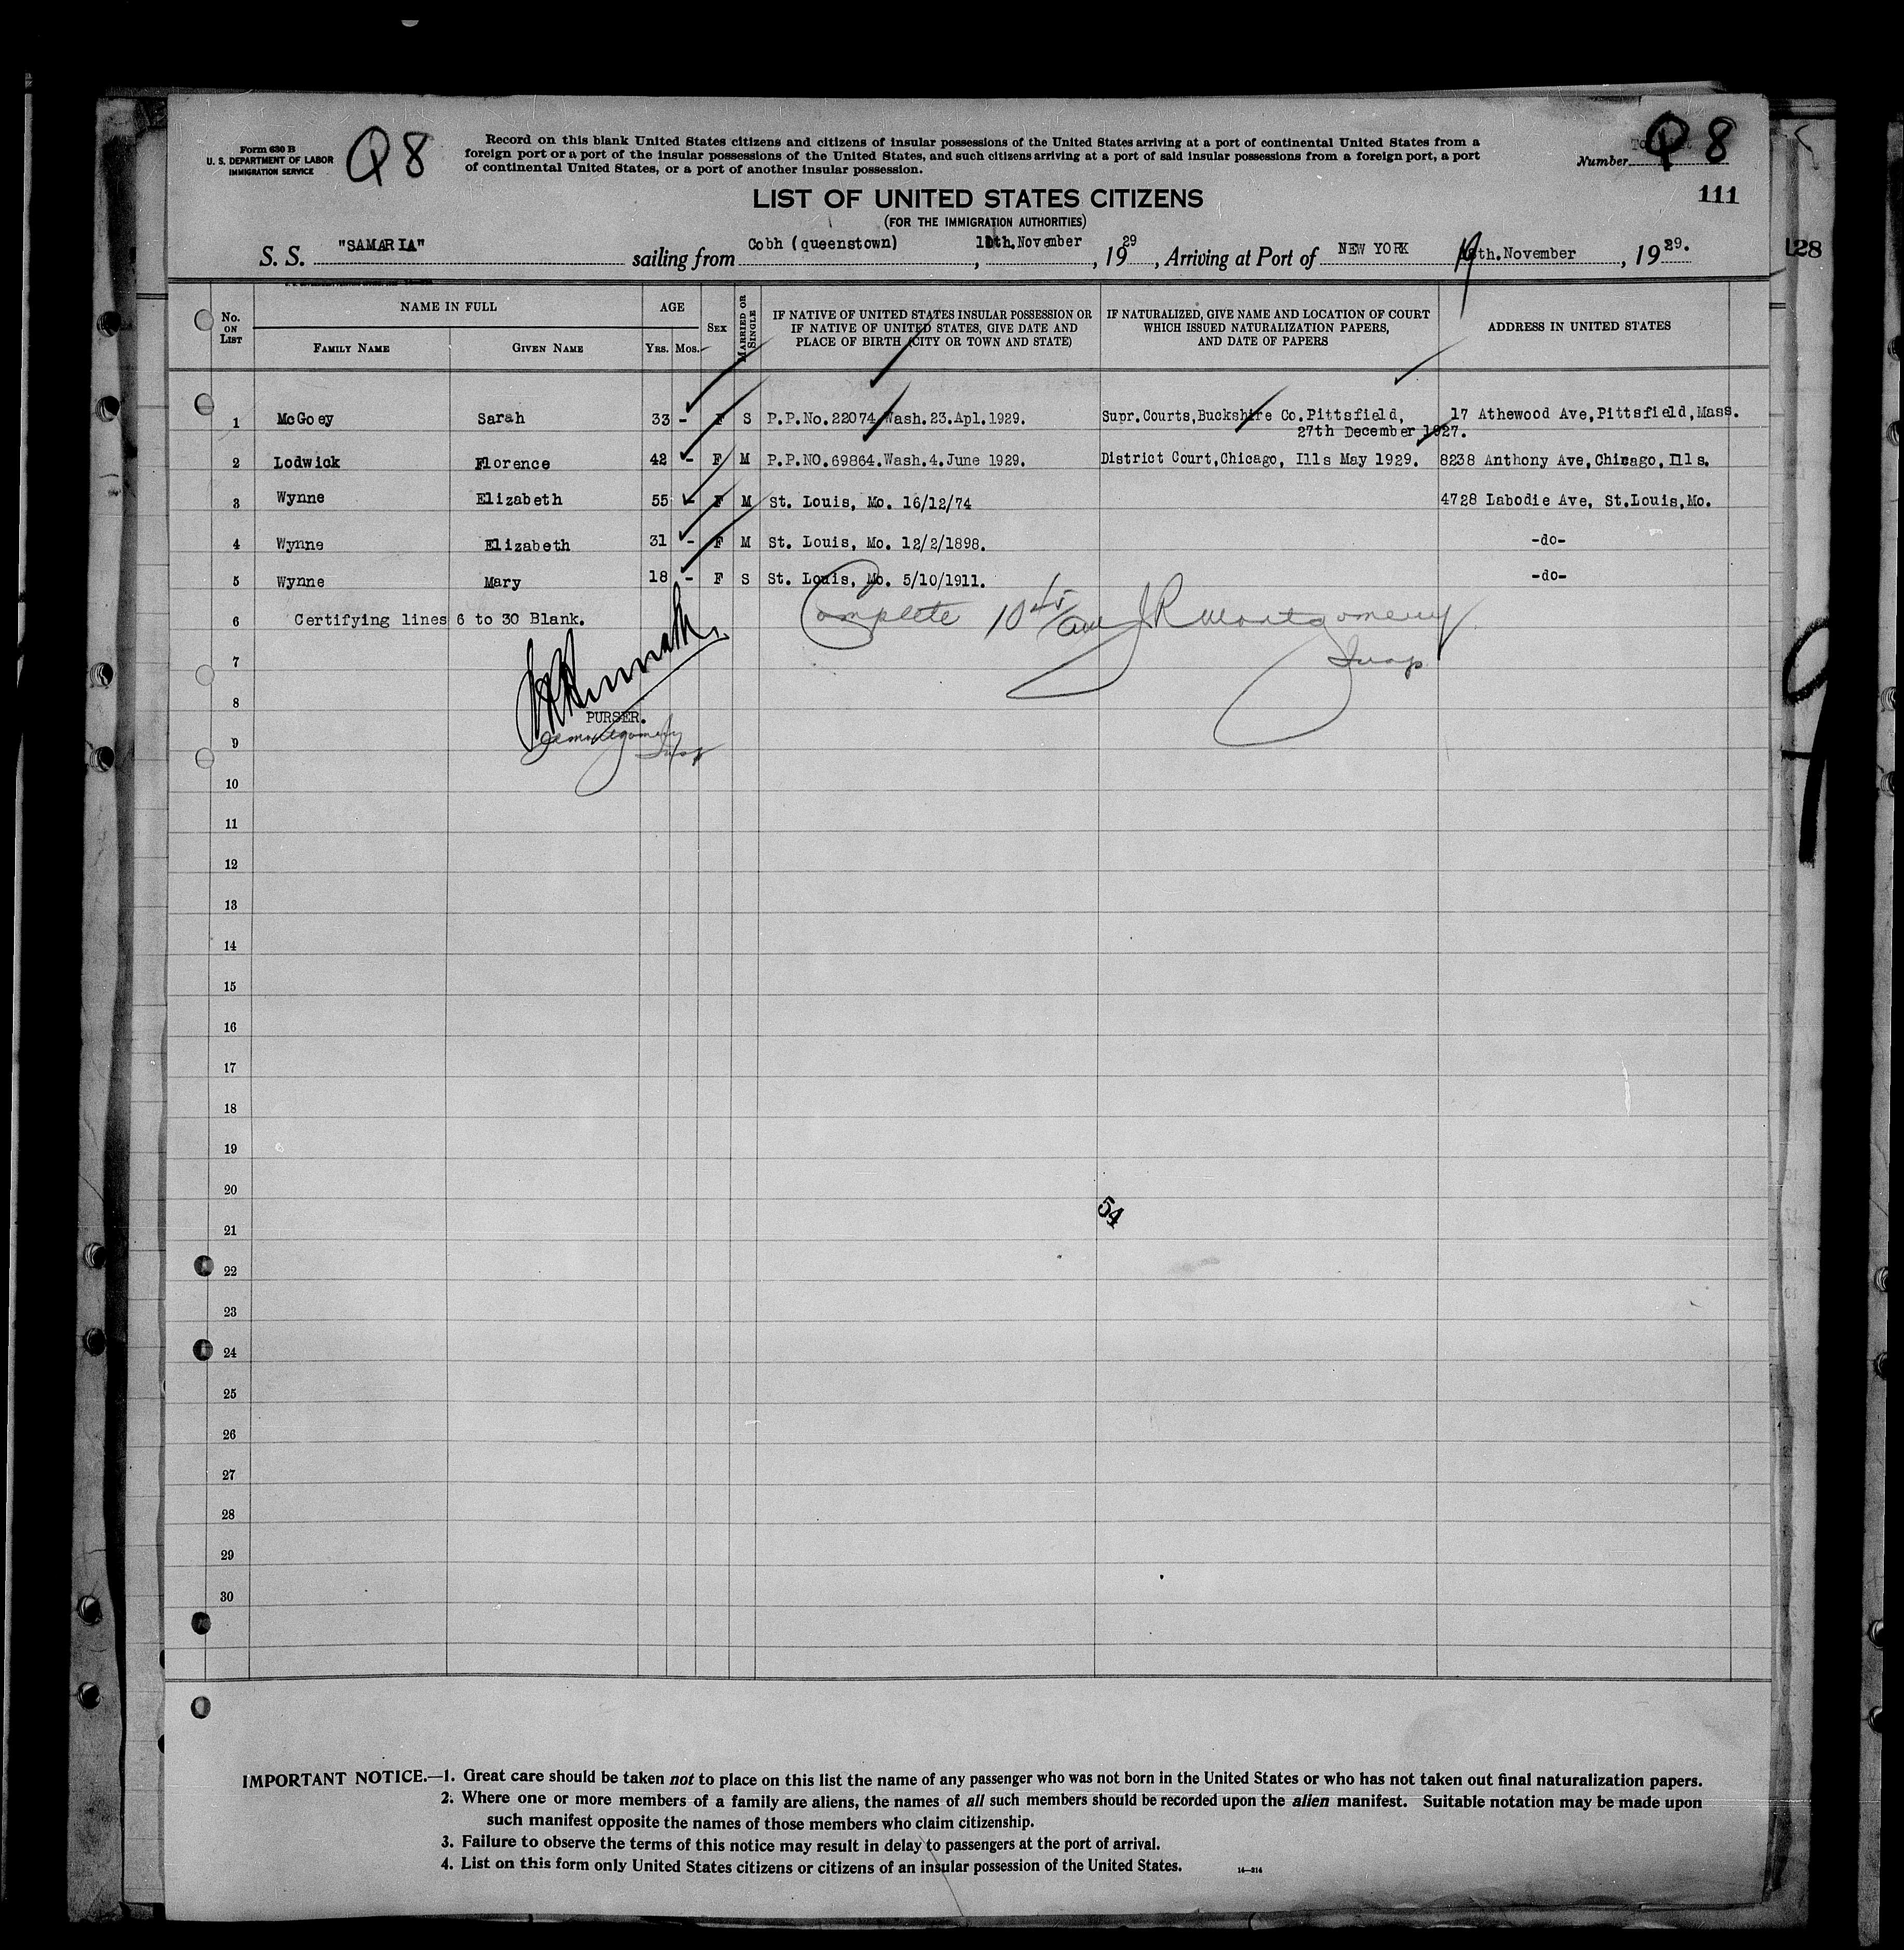 Form 630 B
U. S. DEPARTMENT OF LABOR
IMMIGRATION SERVICE
Q8
Record on this blank United States citizens and citizens of insular possessions of the United States arriving at a port of continental United States from a
foreign port or a port of the insular possessions of the United States, and such citizens arriving at a port of said insular possessions from a foreign port, a port
of continental United States, or a port of another insular possession.
Number Q 8
111
LIST OF UNITED STATES CITIZENS
(FOR THE IMMIGRATION AUTHORITIES)
S. S. "SAMARIA" sailing from Cobh (queenstown), 10th.November, 1929, Arriving at Port of NEW YORK 19th.November, 1929.
128
No. ON LIST
NAME IN FULL
FAMILY NAME
GIVEN NAME
AGE
YRS. MOS.
SEX
MARRIED OR SINGLE
IF NATIVE OF UNITED STATES INSULAR POSSESSION OR
IF NATIVE OF UNITED STATES, GIVE DATE AND
PLACE OF BIRTH (CITY OR TOWN AND STATE)
IF NATURALIZED, GIVE NAME AND LOCATION OF COURT
WHICH ISSUED NATURALIZATION PAPERS,
AND DATE OF PAPERS
ADDRESS IN UNITED STATES
1 McGoey Sarah 33 - F S P.P.No.22074 Wash.23.Apl.1929. Supr.Courts,Buckshire Co.Pittsfield, 17 Athewood Ave,Pittsfield,Mass.
27th December 1927.
2 Lodwick Florence 42 - F M P.P.NO.69864.Wash.4.June 1929. District Court,Chicago, Ills May 1929. 8238 Anthony Ave,Chicago,Ills.
3 Wynne Elizabeth 55 - F M St. Louis, Mo. 16/12/74 4728 Labodie Ave, St.Louis,Mo.
4 Wynne Elizabeth 31 - F M St. Louis, Mo. 12/2/1898. -do-
5 Wynne Mary 18 - F S St. Louis, Mo. 5/10/1911. -do-
6 Certifying lines 6 to 30 Blank. Complete 10 45/am JR Montgomery
7 Insp
8
PURSER.
9 Montgomery
Insp
10
11
12
13
14
15
16
17
18
19
20
54
21
22
23
24
25
26
27
28
29
30
IMPORTANT NOTICE.—1. Great care should be taken not to place on this list the name of any passenger who was not born in the United States or who has not taken out final naturalization papers.
2. Where one or more members of a family are aliens, the names of all such members should be recorded upon the alien manifest. Suitable notation may be made upon
such manifest opposite the names of those members who claim citizenship.
3. Failure to observe the terms of this notice may result in delay to passengers at the port of arrival.
4. List on this form only United States citizens or citizens of an insular possession of the United States.
14—314